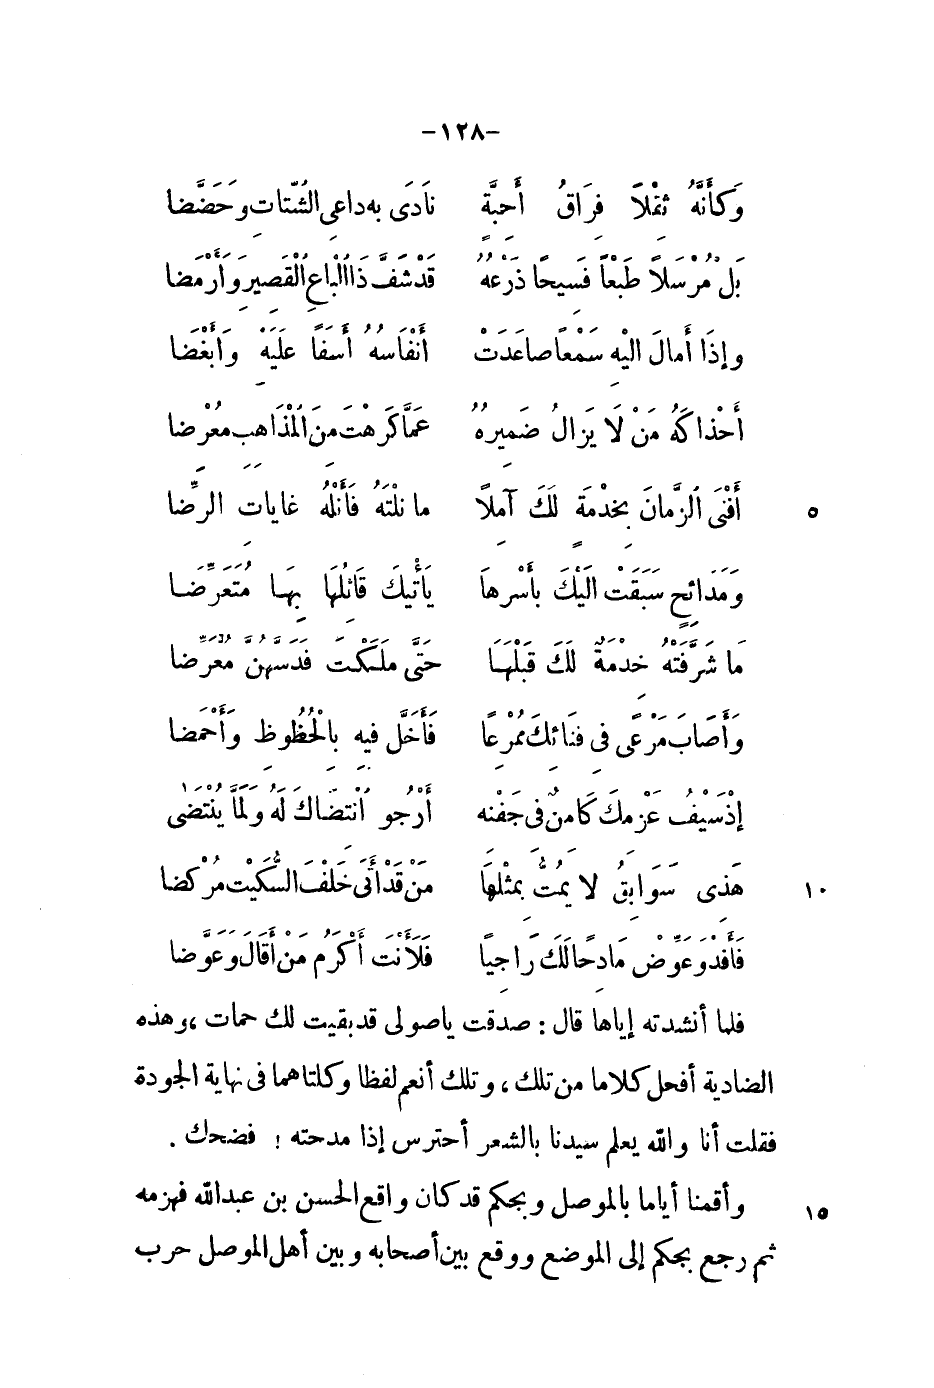 -١٢٨-
وَكَأَنَّهُ ثِقْلًا فِرَاقُ أَحِبَّةٍ نَادَى بِهِ داعِى الشَّتاتِ وَحَضَّضا
بَلْ مُرْسَلًا طَبْعاً فَسِيحًا ذَرْعُهُ قَدْ شَفَّ ذَا الْباعِ الْقَصِيرِ وَأَرْمَضا
وإذَا أَمالَ اليْهِ سَمْعًا صاعَدَتْ أَنْفَاسهُ أَسَفًا عَلَيْهِ وَأَبْغَضا
أَحْذاكَهُ مَنْ لَا يَزالُ ضَمِيرُهُ عَمَّا كَرِهْتَ مِنَ الْمَذَاهِبِ مُعْرِضا
أَفْنَى الزَّمانَ بِخِدْمَةٍ لَكَ آمِلًا ما نلْتَهُ فَأَنْلهُ غاياتِ الرِّضا
٥
وَمَدَائحٍ سَبَقَتْ الَيْكَ بأَسْرِهاَ يَأْتيكَ قَائلُهَا بِهَا مُتَعَرِّضَا
ما شرَّفَتْهُ خِدْمَةٌ لَكَ قَبْلَهَا حَتَّى ملَكْتَ فَدَسَّهُنَّ مُعَرِّضا
وَأَصَابَ مَرْعًى فِى فِنَائِكَ مُمْرِعًا فَأَخَلَّ فِيهِ بِالْحُظُوظِ وَأَحْمَضا
إذْ سَيْفُ عَزْمِكَ كَامنٌ فِى جَفْنه أَرْجُو انْتِضَاكَ لَهُ وَلَمَّا يُنْتَضٰى
هَذِى سَوَابِقُ لا يَمُتُّ بِمثْلِهَا مَنْ قَدْ أَتَى خَلْفَ السُّكَيْتِ مُرْكضا
١٠
فَأَفدْ وَعَوِّضْ مَادِحًا لَكَ رَاجِيًا فَلَأَنْتَ أَكْرَمُ مَنْ أَقَالَ وَعَوَّضا
فلما أنشدته إياها قال : صدقت ياصولى قد بقيت لك حمات ، وهذه
الضادية أفحل كلاما من تلك ، وتلك أنعم لفظا وكلتاهما فى نهاية الجودة
فقلت أنا والله يعلم سيدنا بالشعر أحترس إذا مدحته ! فضحك .
وأقمنا أياما بالموصل وبجكم قد كان واقع الحسن بن عبدالله فهزمه
١٥
ثم رجع بجكم إلى الموضع ووقع بين أصحابه وبين أهل الموصل حرب